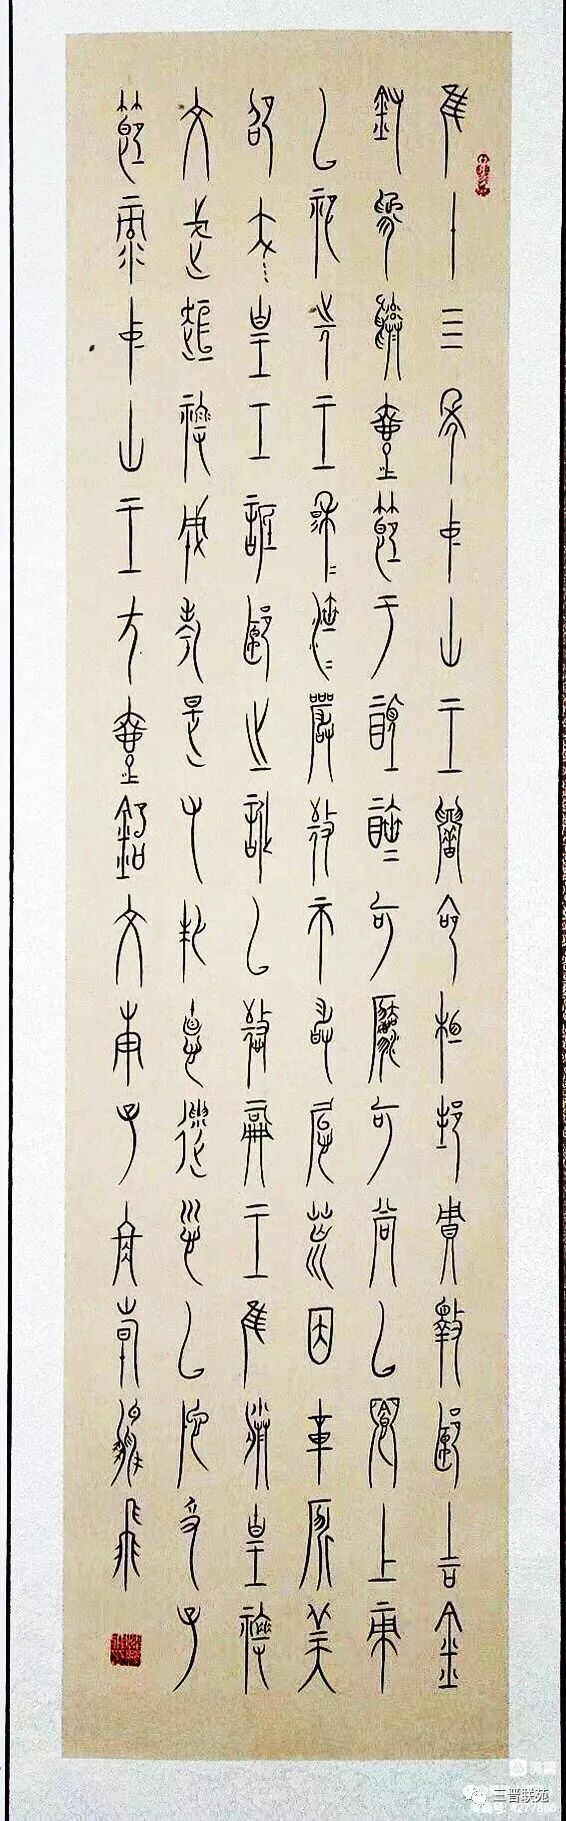 隹十四年中山王䰜命相邦賙斁郾吉金
鑄為彝壺節于禋齊可法可尚以饗上帝
以祀先王穆=濟=嚴敬不敢怠荒因載所美
邵大皇工詆郾之訛以警嗣王隹朕皇祖
文武桓祖成考是又純德遺訓以陀及子
節錄中山王方壺銘文庚子
三晋联苑